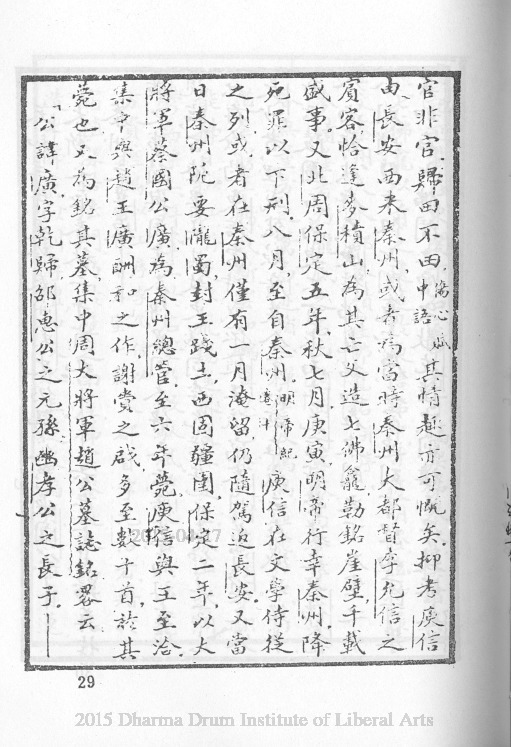 官非官歸田不田傷心賦中語其情趣亦可慨矣抑考庾信
由長安西來秦州或者為當時秦州大都督李允信之
賓客恰逢麥積山為其亡父造七佛龕勒銘崖壁千載
盛事又北周保定五年秋七月庚寅明帝行幸秦州降
死罪以下刑八月至自秦州明帝紀卷十庾信在文學侍從
之列或者在秦州僅有一月淹留仍隨駕返長安又當
日秦州阨要隴蜀封王踐土西固疆圉保定二年以大
將軍蔡國公廣為秦州總管至六年薨庾信與王至洽
集中與趙王廣酬和之作謝賚之啟多至數十首於其
薨也又為銘其墓集中周大將軍趙公墓誌銘畧云
「公諱廣字乾歸邵惠公之元孫豳孝公之長子——
29
2015 Dharma Drum Institute of Liberal Arts